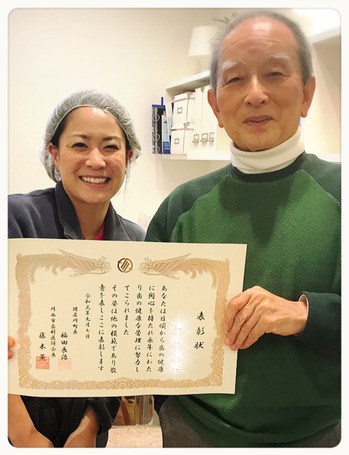 表彰状
あなたは日頃から歯の健康
に関心を持たれ永年にわた
り歯の健康な管理に努力し
てこられました
その姿は他の模範であり敬
意を表しここに表彰します
令和元年九月七日
猪名川町長
福田長治
川西市歯科医師会長
藤末